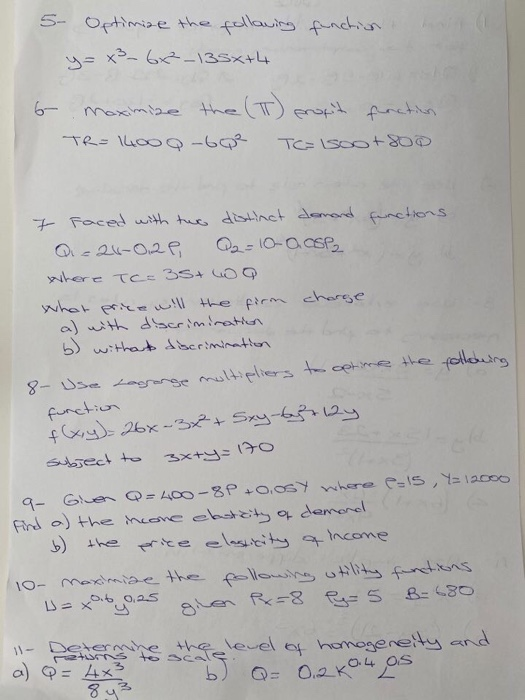 5- Optimize the following function
y = x³ - 6x² - 135x + 4
6- Maximize the (π) profit function
TR = 1400Q - 6Q² TC = 1500 + 80Q
7 Faced with two distinct demand functions
Q₁ = 24 - 0.2P₁ Q₂ = 10 - 0.05P₂
where TC = 35 + 40Q
what price will the firm charge
a) with discrimination
b) without discrimination
8- Use Lagrange multipliers to optime the following
function
f(x,y) = 26x - 3x² + 5xy - 6y² + 12y
subject to 3x + y = 170
9- Given Q = 400 - 8P + 0.05Y where P=15, Y=12000
Find a) the income elasticity of demand
b) the price elasticity of income
10- maximize the following utility functions
U = x^0.6 y^0.25 given Px=8 Py=5 B=680
11- Determine the level of homogeneity and
returns to scale.
a) Q = 4x³/8y³ b) Q = 0.2K^0.4 L^0.5